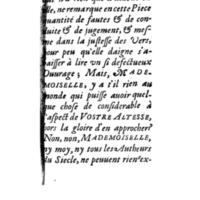 lle, ne remarque en cette Piece
quantité de fautes & de con-
duite & de jugement, & mes-
me dans la justesse des Vers,
pour peu qu'elle daigne s'a-
baisser à lire vn si defectueux
Ouurage ; Mais, MADE-
MOISELLE, y a t'il rien au
monde qui puisse auoir quel-
que chose de considerable à
l'aspect de VOSTRE ALTESSE,
hors la gloire d'en approcher?
Non, non, MADEMOISELLE,
ny moy, ny tous les Autheurs
du Siecle, ne peuuent rien ex-